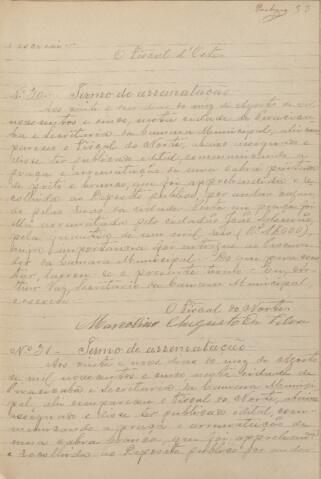 o escrevi.
O Fiscal d'Oeste
Nº 30 - Termo de arrematação
Aos vinte e seis dias do mez de Agosto de mil
novecentos e cinco, nesta cidade de Piracica-
ba e Secretaria da Camara Municipal, ahi com-
pareceu o Fiscal do Norte, abaixo assignado e
disse ter publicado edital, communicando a
praça e arrematação de uma cabra pintada
de preto e branco, que foi apprehendida e re-
colhida ao Deposito publico por andar vagan-
do pelas ruas da cidade. Posta em praça foi
ella arrematada pelo cidadão José
pela quantia de um mil reis (Rs. 1$000),
cuja importancia foi entregue ao Procura-
dor da Camara Municipal. Do que para cons-
tar, lavrou-se o presente termo. Eu, Ar-
thur Vaz, Secretario da Camara Municipal,
o escrevi.
O Fiscal do Norte
Marcolino Augusto da
Nº 31 - Termo de arrematação
Aos vinte e nove dias do mez de Agosto
de mil novecentos e cinco nesta cidade de
Piracicaba e Secretaria da Camara Munici-
pal, ahi compareceu o Fiscal do Norte, abaixo
assignado e disse ter publicado edital, com-
municando a praça e arrematação de
uma cabra branca, que foi apprehendida
e recolhida ao Deposito publico por andar